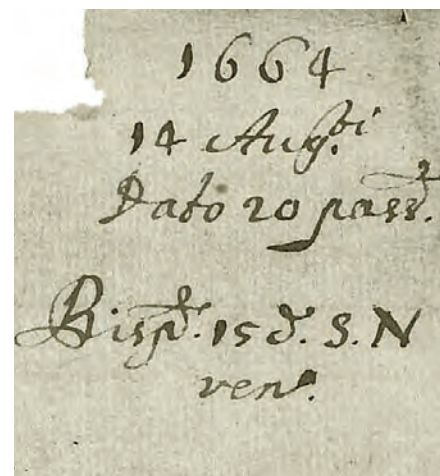 1664
14 Aug.sti
Dato 20 pass.
Bisp. 15 d. S. N
ven.